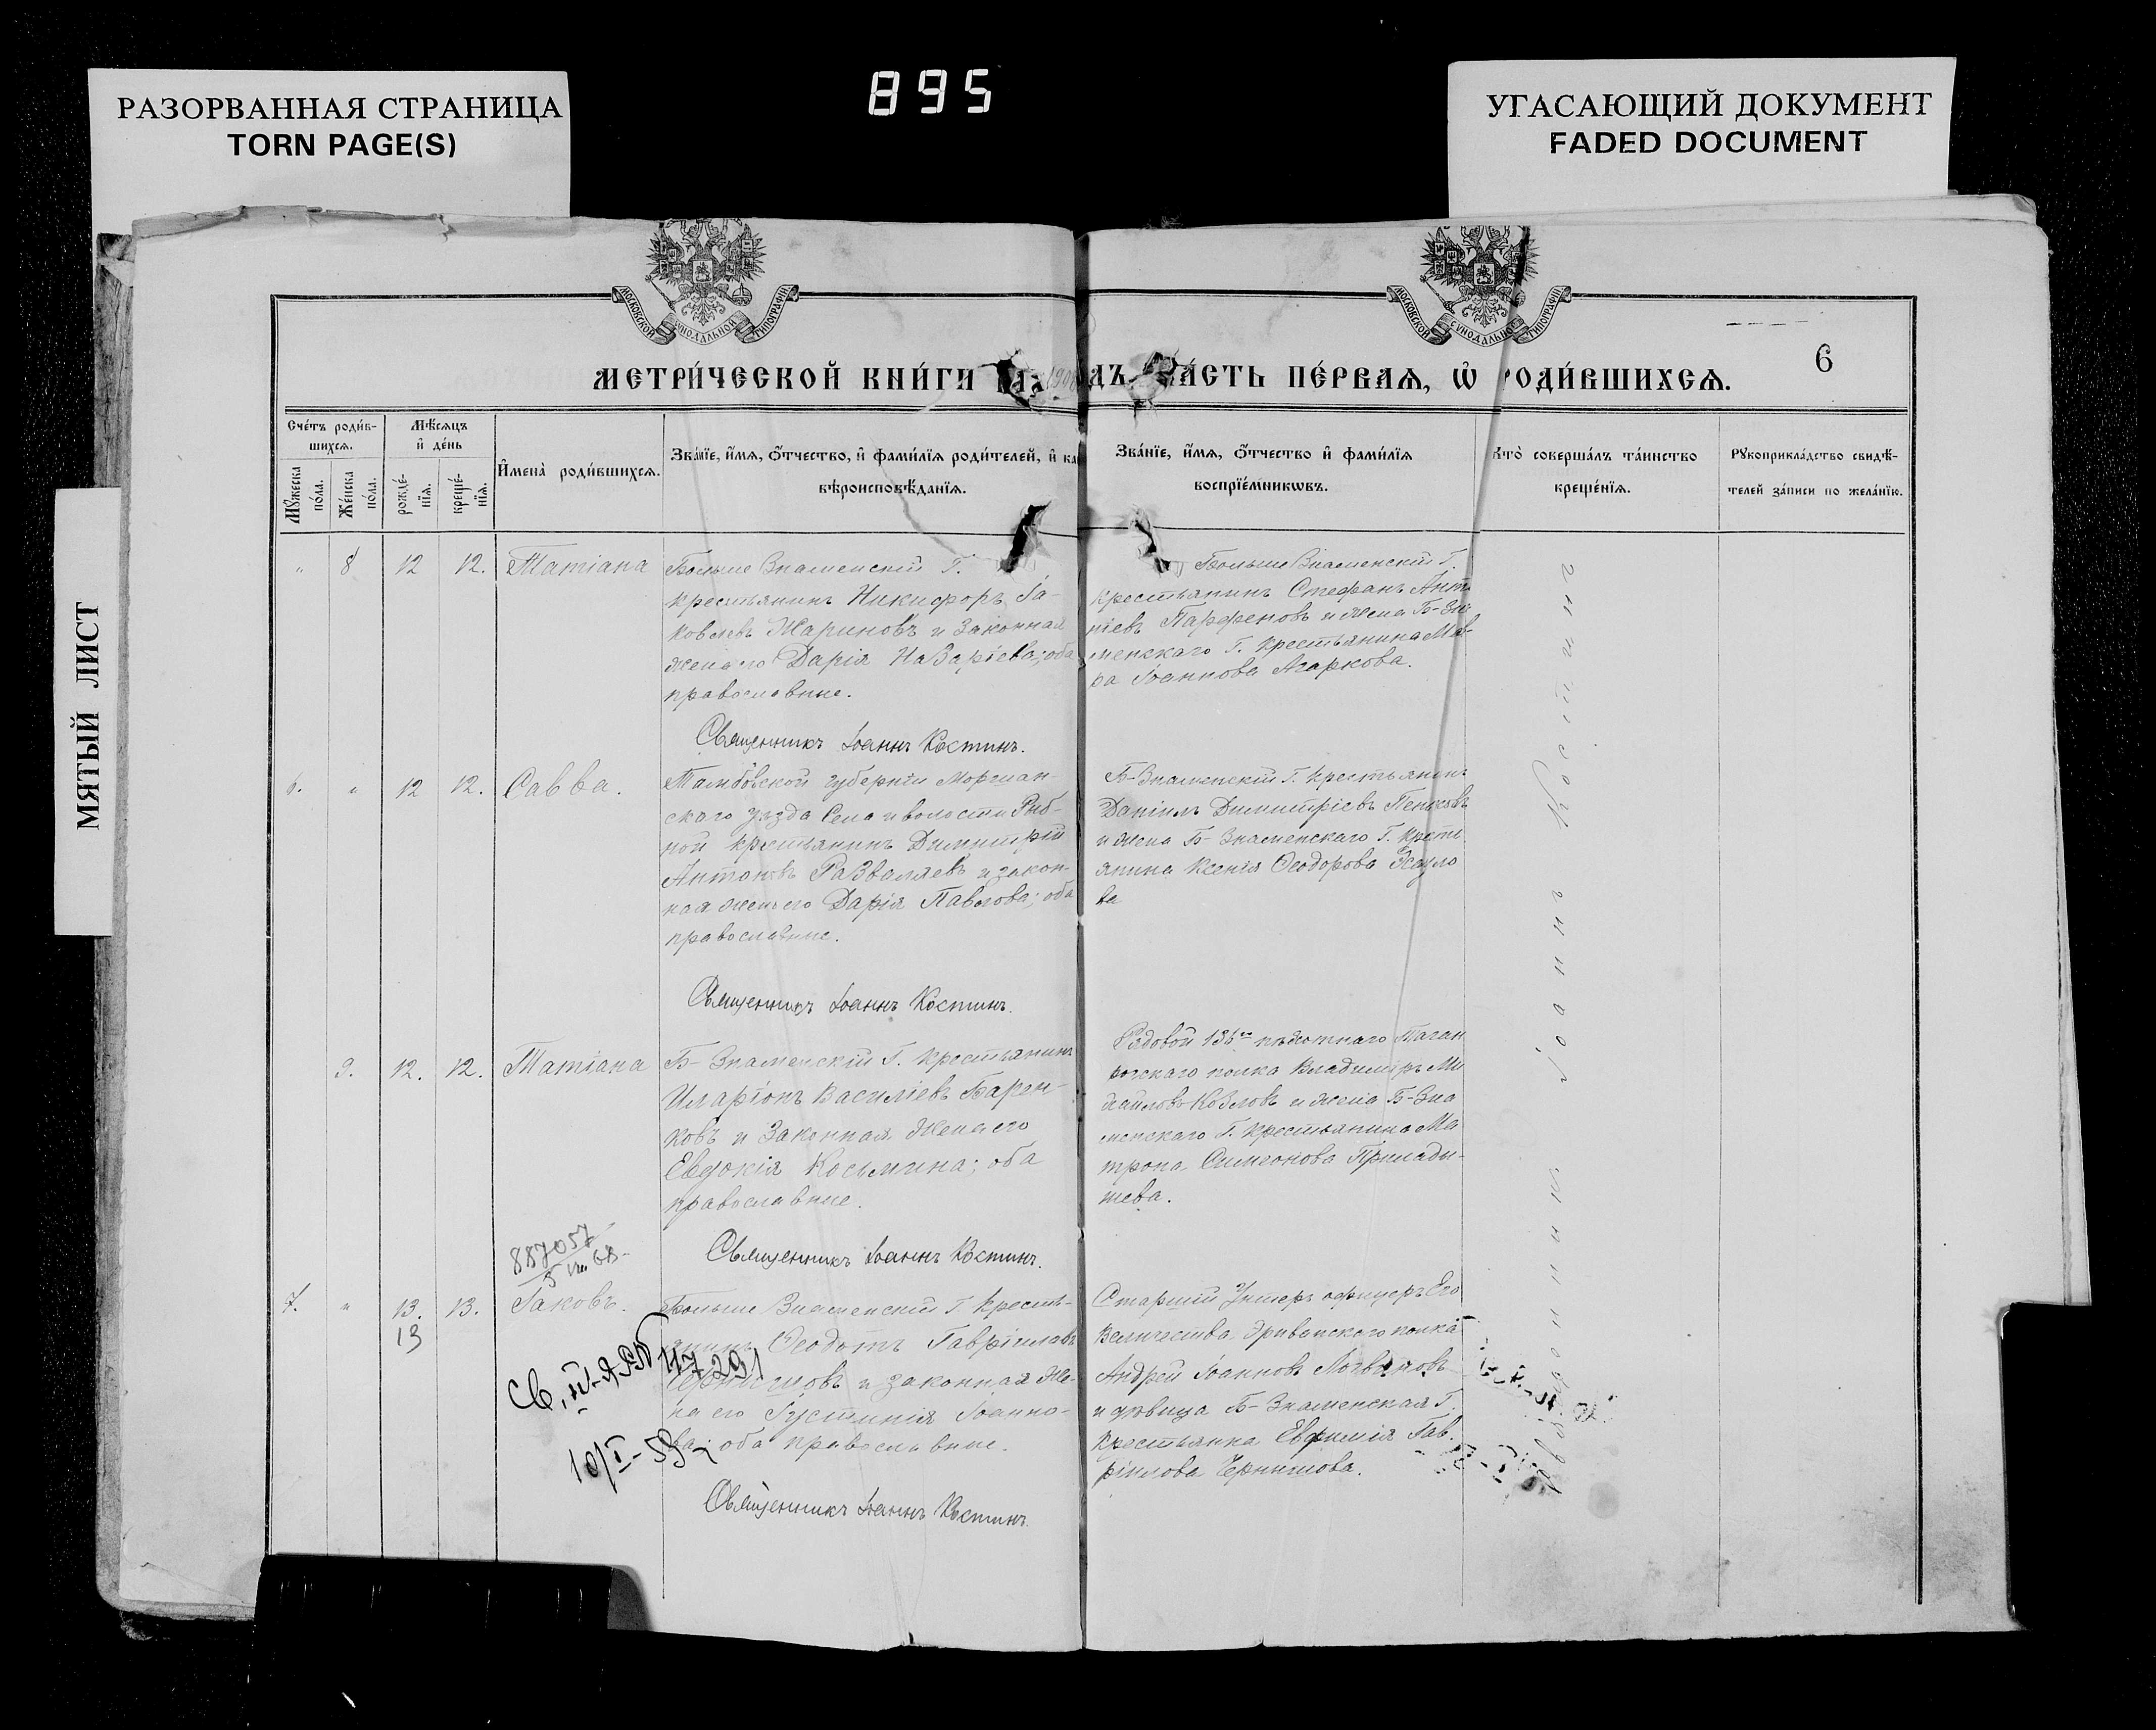 895
РАЗОРВАННАЯ СТРАНИЦА
TORN PAGE(S)
УГАСАЮЩИЙ ДОКУМЕНТ
FADED DOCUMENT
МЯТЫЙ ЛИСТ
МОСКОВСКОЙ СУНОДАЛЬНОЙ ТИПОГРАФІИ
МОСКОВСКОЙ СУНОДАЛЬНОЙ ТИПОГРАФІИ
6
МЕТРИ́ЧЕСКОЙ КНИ́ГИ
ЧА́СТЬ ПЕ́РВАЯ, Ѡ РОДИ́ВШИХСЯ.
Сче́тъ роди́в-
шихся.
Мѣ́сяцъ
и҆ де́нь
Мꙋ́жеска
по́ла.
Же́нска
по́ла.
рожде́-
нїя.
креще́-
нїя.
И҆мена̀ роди́вшихся.
Зва́нїе, и҆́мя, ѻ҆́тчество, и҆ фами́лїя роди́телей, и҆
вѣроисповѣ́данїя.
Зва́нїе, и҆́мя, ѻ҆́тчество и҆ фами́лїя
воспрїе́мникѡвъ.
Кто̀ соверша́лъ та́инство
креще́нїя.
Рꙋкоприкла́дство свидѣ́-
телей за́писи по жела́нїю.
" 8 12 12. Татіана
Больше Знаменскій Г.
крестьянинъ Никифоръ Іа-
ковлевъ Жариновъ и законная
жена его Дарія Назаріева; оба
православные.
Священникъ Іоаннъ Костинъ.
Больше Знаменскій Г.
крестьянинъ Стефанъ Анто
ніевъ Парфеновъ и жена Б-Зна
менскаго Г. крестьянина Мав-
ра Іоаннова Агаркова.
6. " 12 12. Савва.
Тамбовской губерніи Моршан-
скаго уѣзда Села и волости Рыб-
ной крестьянинъ Димитрій
Антоновъ Разваляевъ и закон-
ная жена его Дарія Павлова; оба
православные.
Священникъ Іоаннъ Костинъ.
Б-Знаменскій Г. крестьянинъ
Даніилъ Димитріевъ Пеньковъ
и жена Б-Знаменскаго Г. кресть
янина Ксенія Ѳеодорова
ва
9. 12. 12. Татіана
Б-Знаменскій Г. крестьянинъ
Иларіонъ Василіевъ Барен-
ковъ и законная жена его
Евдокія Косьмина; оба
православные.
Священникъ Іоаннъ Костинъ.
Рядовой 136го пѣхотнаго Таган
рогскаго полка Владиміръ Ми
хайловъ Козловъ и жена Б-Зна
менскаго Г. крестьянина Ма
трона Симеонова
шева.
887057
7. " 13. 13. Іаковъ.
13
Больше Знаменскій Г. кресть-
янинъ Ѳеодотъ Гавріиловъ
и законная же-
на его Іустинія Іоанно-
ва; оба православные.
Священникъ Іоаннъ Костинъ.
Св. IV-ЯРП 117291
10/I-59
Старшій Унтеръ офицеръ Его
Величества Эриванскаго полка
Андрей Іоанновъ Логвиновъ
и дѣвица Б-Знаменская Г.
крестьянка Евфимія Гав-
ріилова Чернышова.